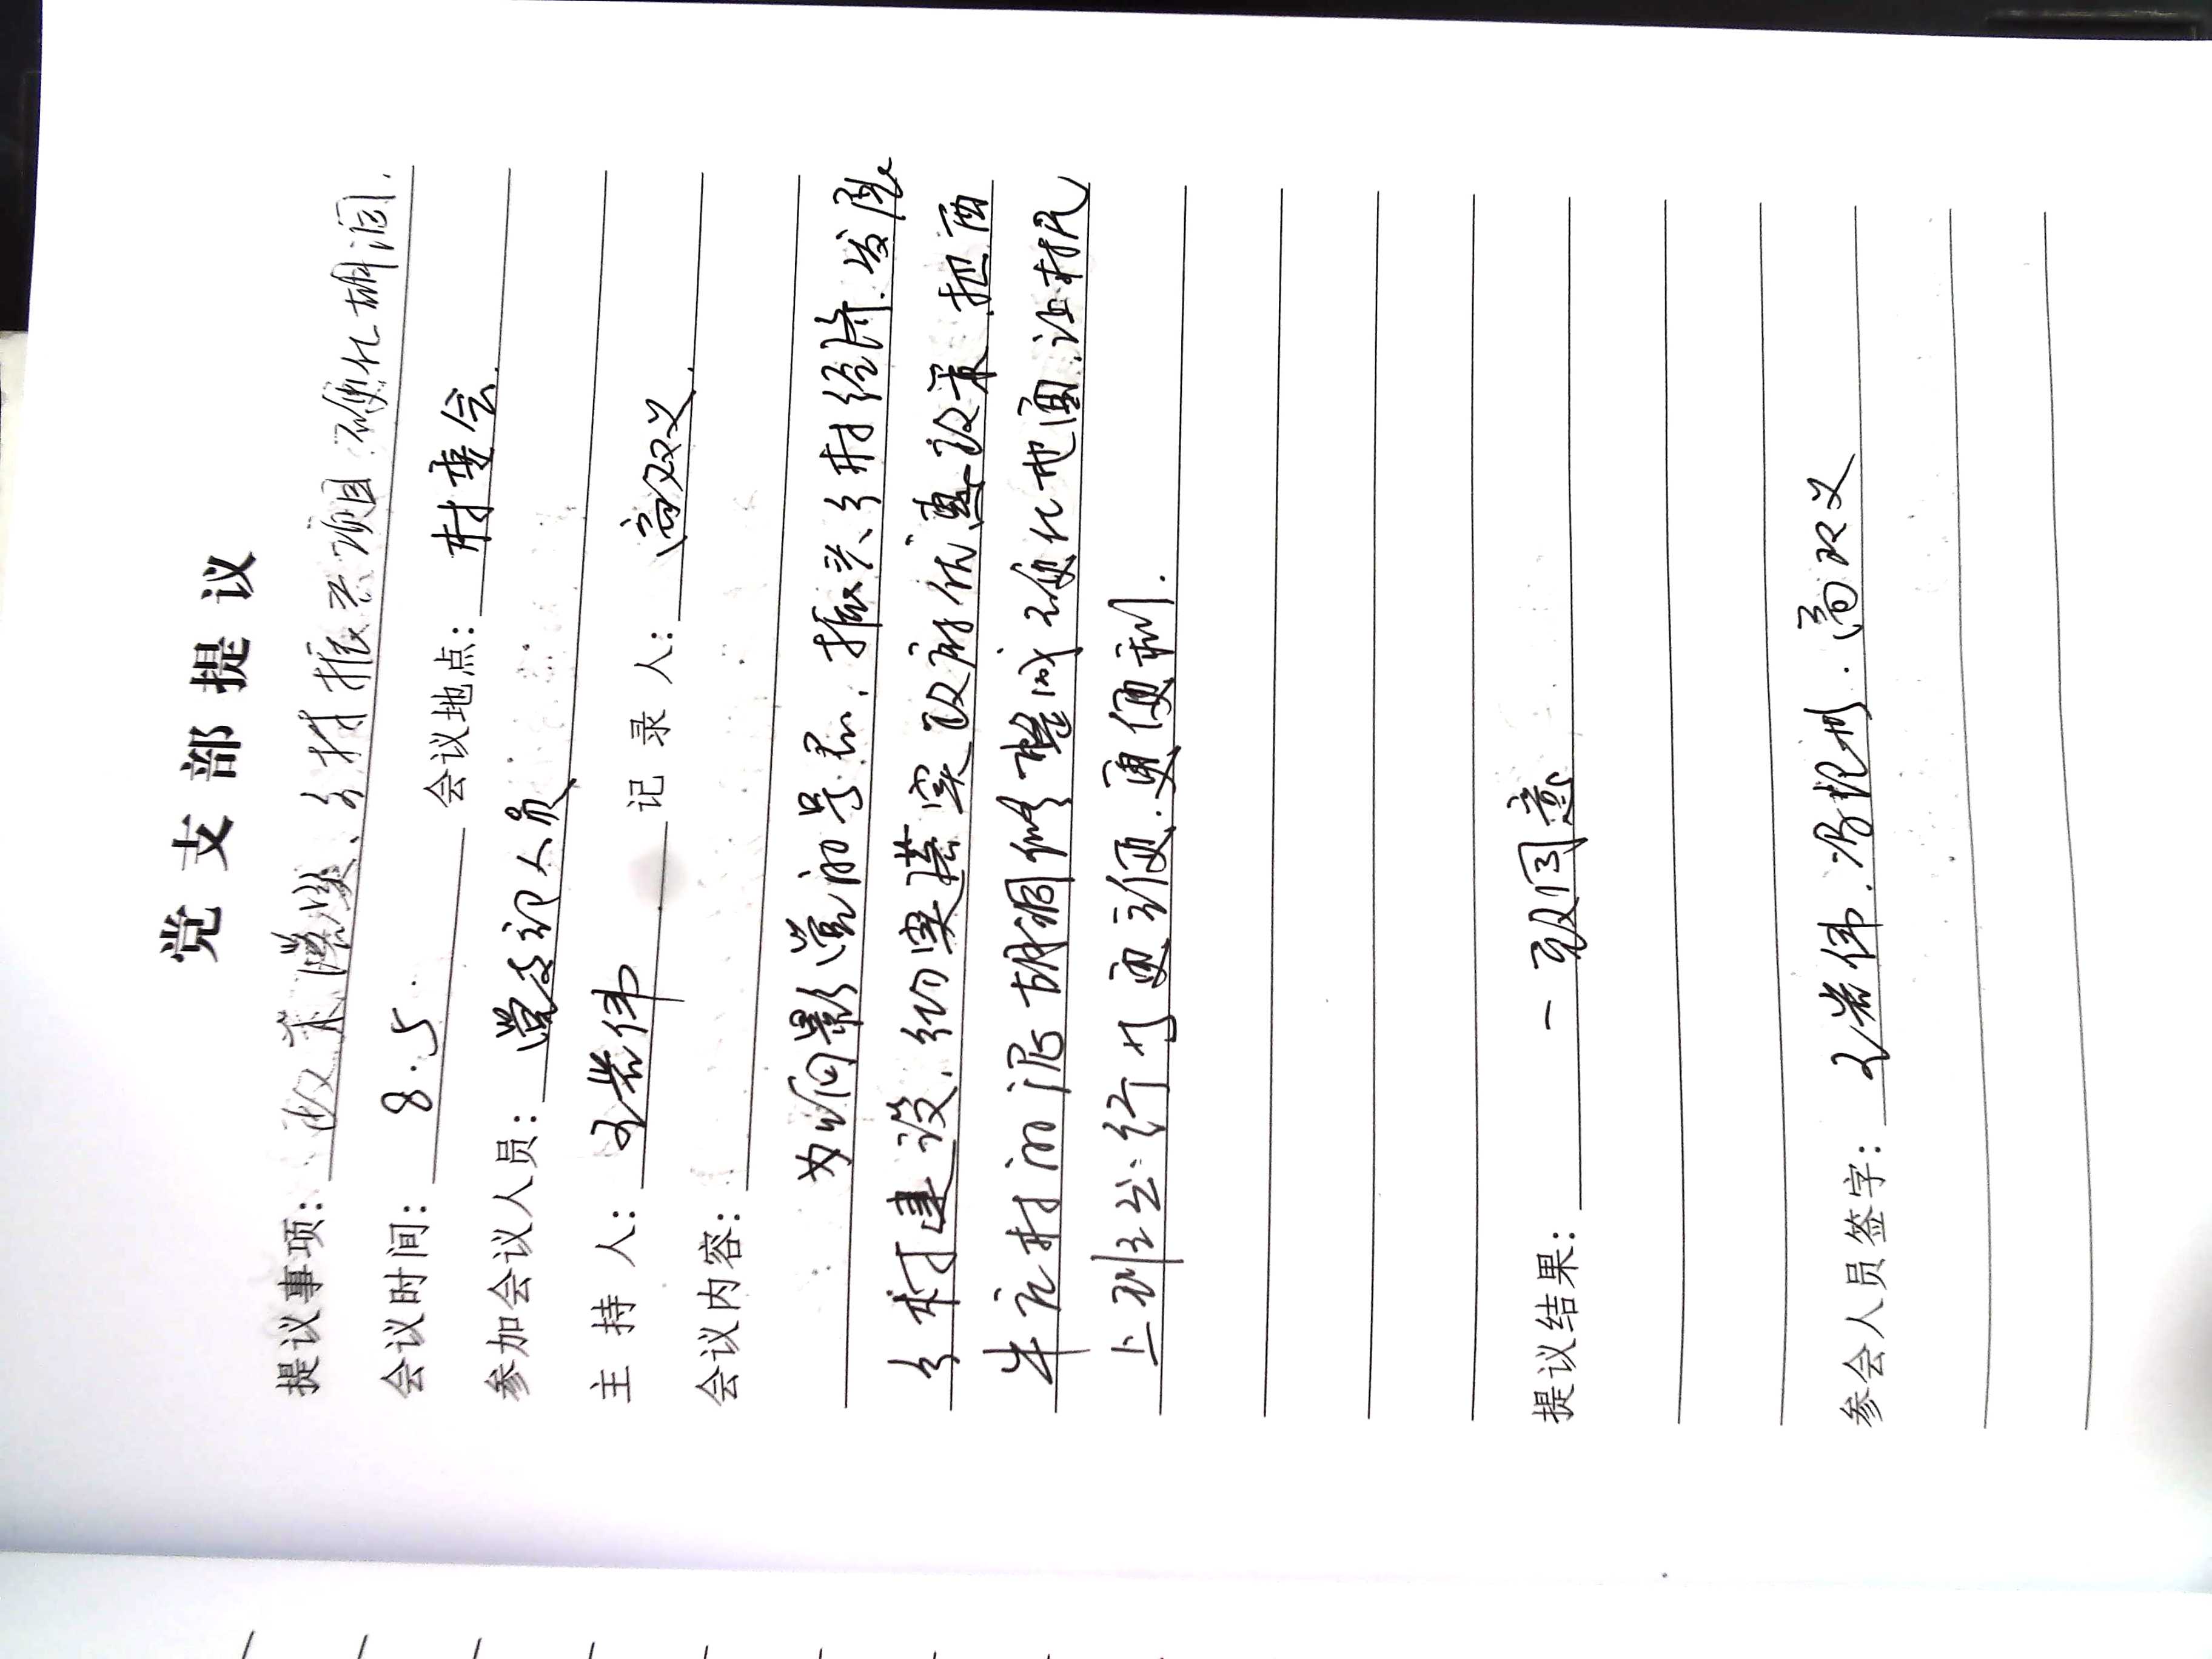 党支部提议
提议事项：政策落实、乡村振兴项目硬化胡洞.
会议时间：8.5. 会议地点：村委会.
参加会议人员：党支部人员
主持人：王岩伟 记录人：高双义.
会议内容：
为响影党的号召，振兴乡村经济.发展
乡村建设，切实落实政府优惠政策，把西
牛庄村的泥胡洞修整成硬化地面，让村民
上班行更方便.更便利.
提议结果：一致同意
参会人员签字：王岩伟.冯.高双义